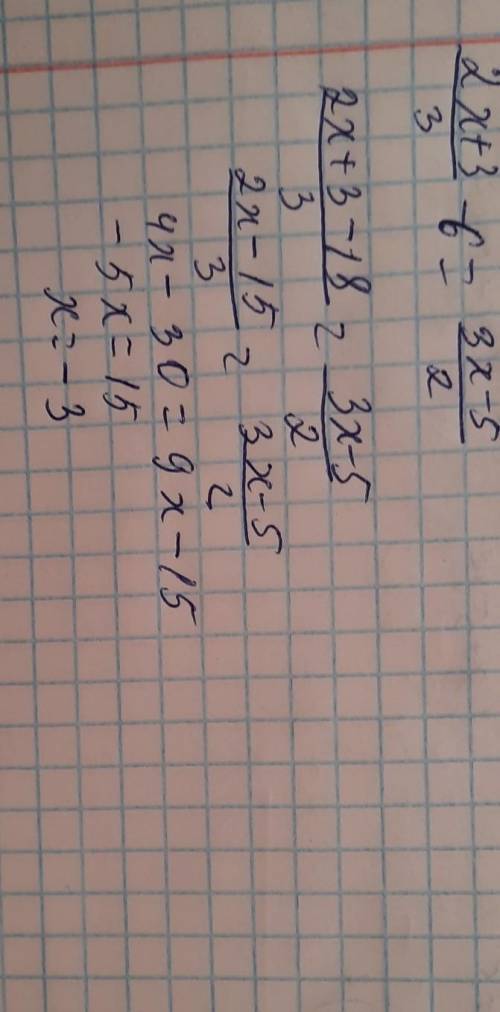 (2x+3)/3 - 6 = (3x-5)/2
(2x+3-18)/3 = (3x-5)/2
(2x-15)/3 = (3x-5)/2
4x - 30 = 9x - 15
-5x = 15
x = -3